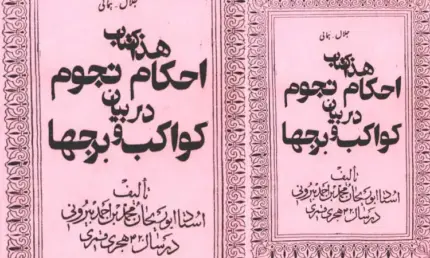 جلال - همائی
هذا کتاب
احکام نجوم
در بیان
کواکب و برجها
تألیف
استاد ابوریحان محمد بن احمد بیرونی
در سال ۴۲۰ هجری قمری
جلال - همائی
هذا کتاب
احکام نجوم
در بیان
کواکب و برجها
تألیف
استاد ابوریحان محمد بن احمد بیرونی
در سال ۴۲۰ هجری قمری